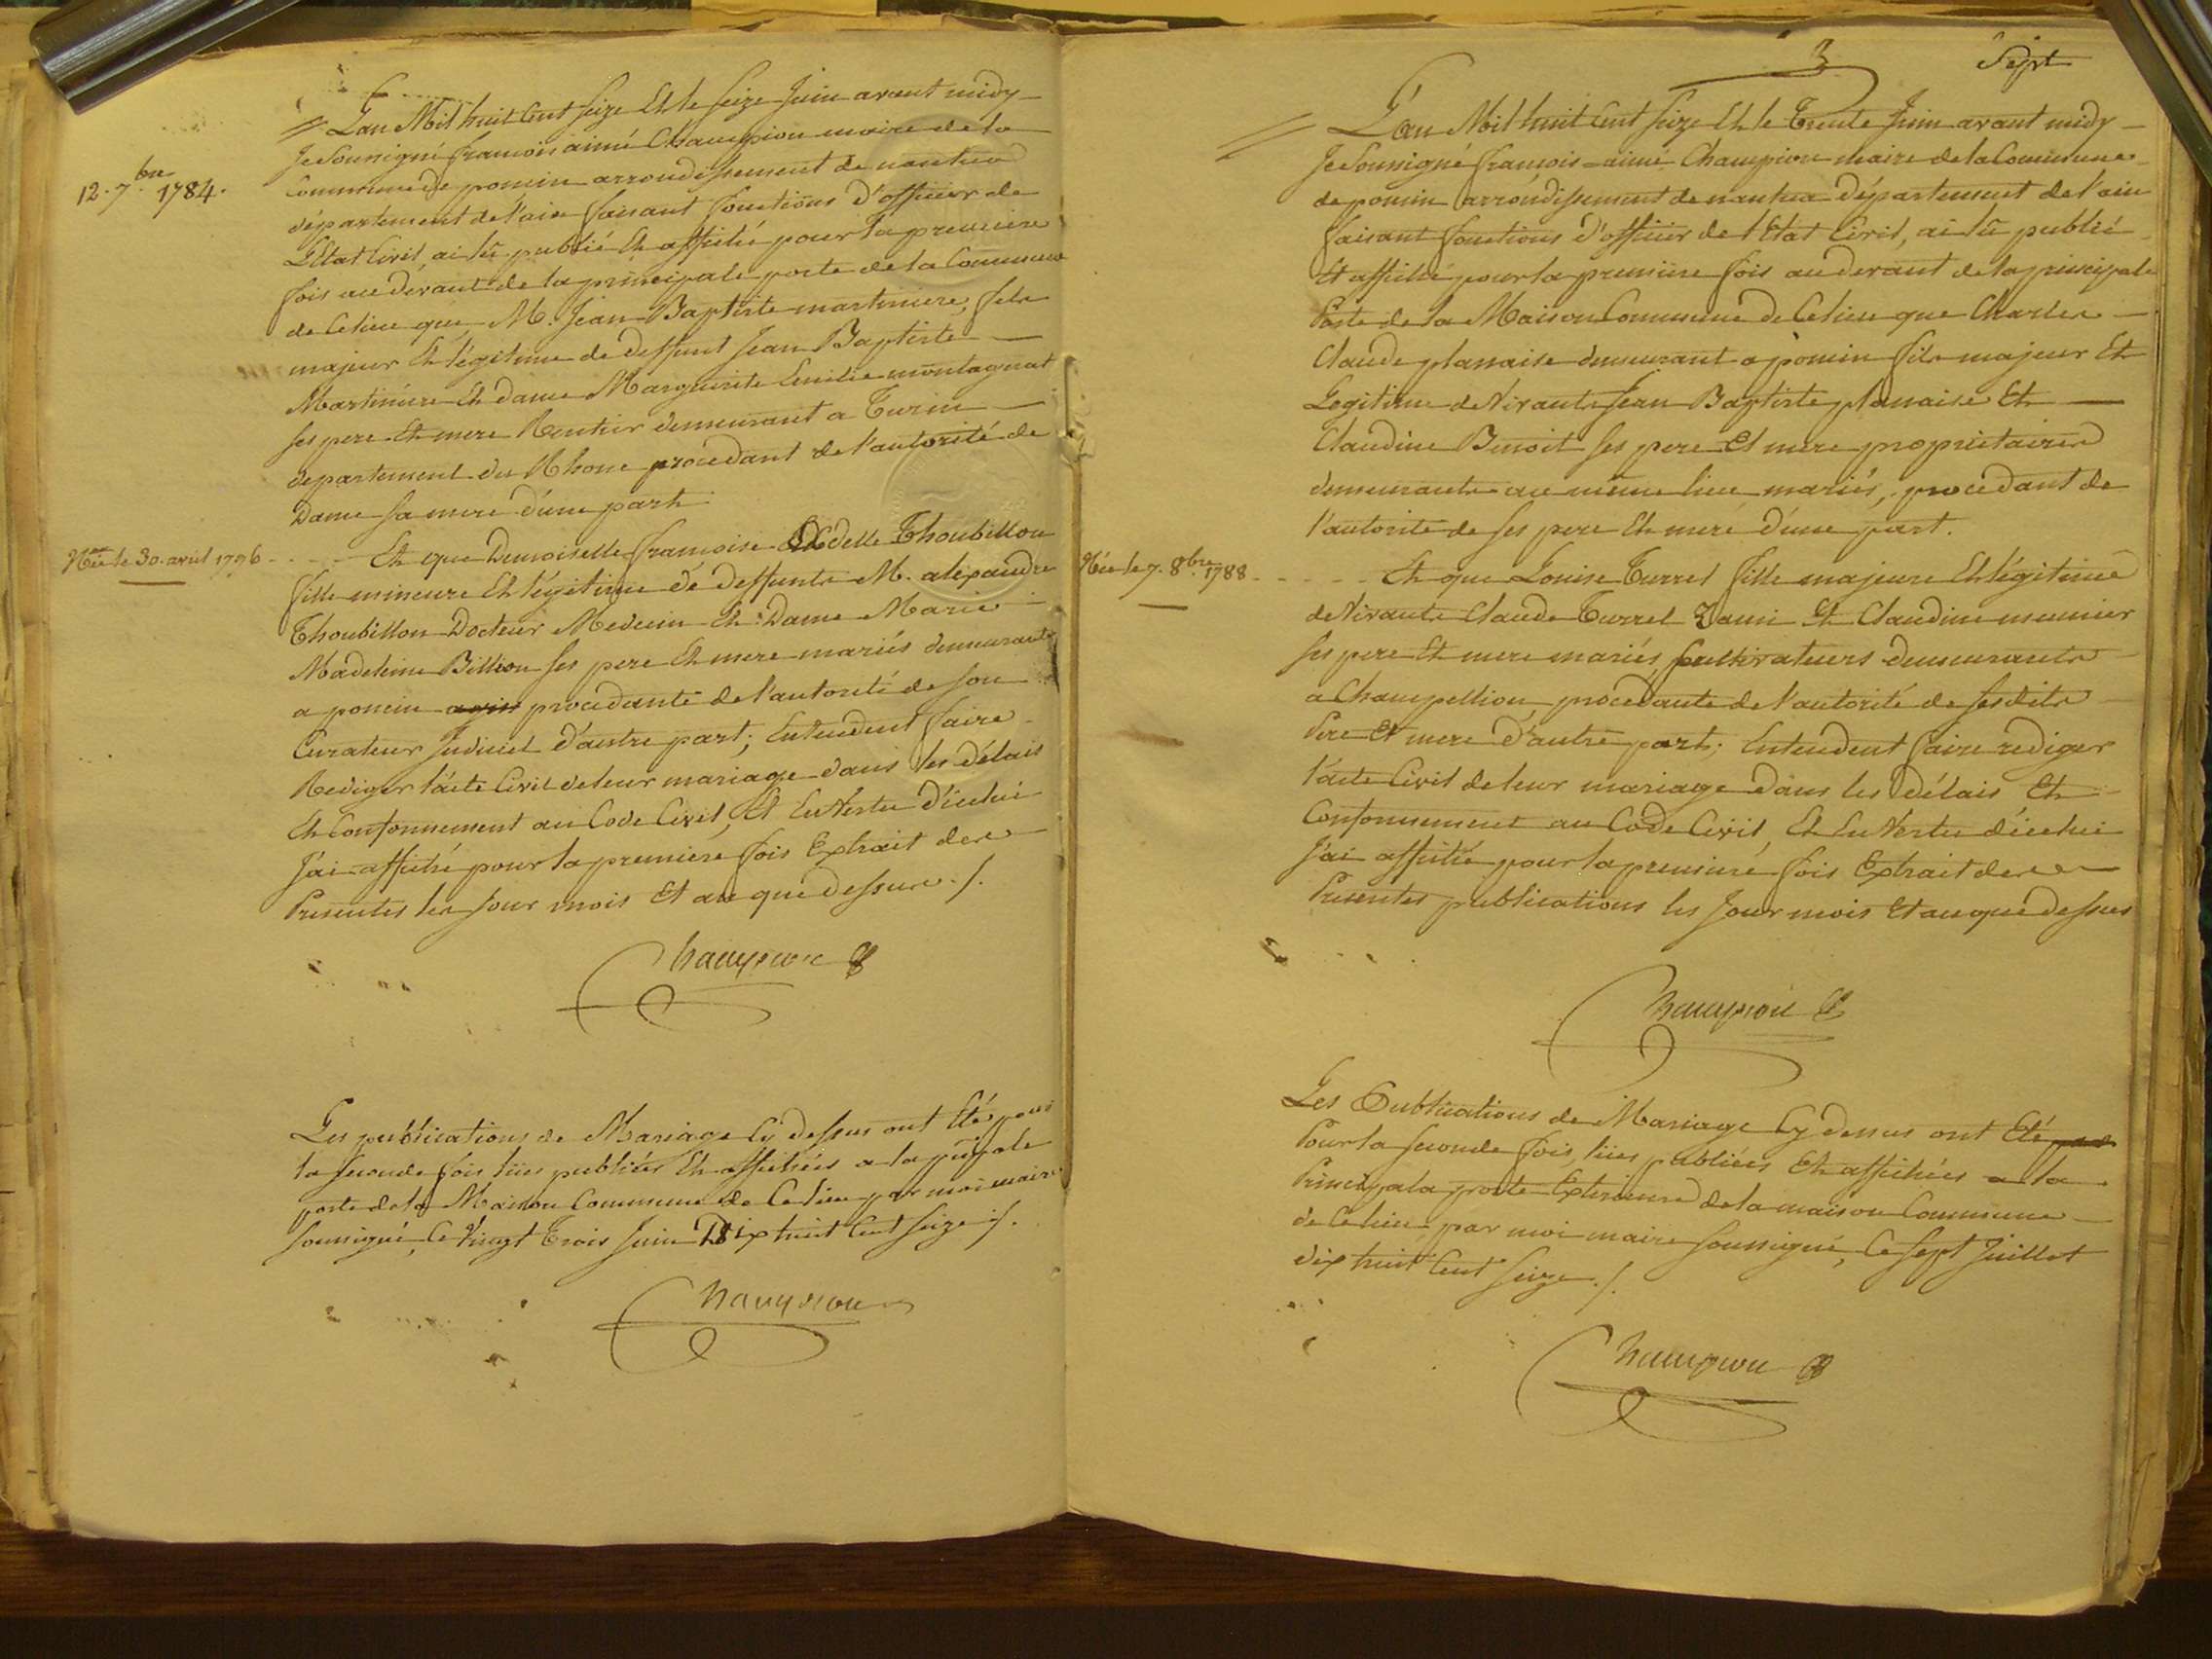 L'an Mil huit Cent seize Et le seize Juin avant midy
Je Soussigné françois aimé Champion maire de la
Commune de poncin arrondissement de nantua
12. 7.bre 1784.
département de l'ain faisant fonctions d'officier de
L'Etat Civil, ai lû publié Et affiché pour la premiere
fois au devant de la principale porte de la Commune
de Ce lieu que M. Jean Baptiste martiniere, fils
majeur Et légitime de deffunt Jean Baptiste
Martiniere Et dame Marguerite Emilie montagnat
ses pere Et mere Rentier demeurant a Turin
departement du Rhone procedant de l'autorité de
Dame sa mere d'une part
Née le 30. avril 1796
Et que Demoiselle françoise Thoubillon
fille mineure Et légitime de deffunts M. alexandre
Thoubillon Docteur Medecin Et Dame Marie
Madeleine Billion ses pere Et mere mariés demeurants
a poncin procedante de l'autorité de son
Curateur Judiciel d'autre part; Entendent faire
Rediger l'acte Civil de leur mariage dans les délais
Et Conformement au Code Civil, Et En Vertu d'icelui
J'ai affiché pour la premiere fois Extrait des
Presentes les Jour mois Et an que dessus ./.
Champion
Les publications de Mariage Cy dessus ont Eté pour
la seconde fois lües publiées Et affichées a la
porte de la Maison Commune de Ce lieu par moi maire
soussigné, Ce Vingt Trois Juin Dix huit Cent seize ./.
Champion
3 Sept
L'an Mil huit Cent seize Et le Trente Juin avant midy
Je Soussigné françois=aimé Champion maire de la Commune
de poncin arrondissement de nantua Département de l'ain
faisant fonctions d'officier de l'Etat Civil, ai lû publié
Et affiché pour la premiere fois au devant de la principale
Porte de la Maison Commune de Ce lieu que Charles
Claude planaise demeurant a poncin fils majeur Et
Legitime de Vivants Jean Baptiste planaise Et
Claudine Benoit ses pere Et mere proprietaires
demeurants au même lieu mariés, procedant de
l'autorité de ses pere Et mere d'une part.
Née le 7. 8.bre 1788
Et que Louise Turrel fille majeure Et légitime
de Vivants Claude Turrel Et Claudine meunier
ses pere Et mere mariés, Cultivateurs demeurants
a Champellion, procedante de l'autorité de sesdits
Pere Et mere d'autre part; Entendent faire rediger
l'acte Civil de leur mariage dans les Délais Et
Conformement au Code Civil, Et En Vertu d'icelui
J'ai affiché pour la premiere fois Extrait des
Presentes publications les Jour mois Et an que dessus
Champion
Les Publications de Mariage Cy dessus ont Eté
Pour la seconde fois, lües publiées Et affichées a la
Principale porte Exterieure de la maison Commune
de Ce lieu, par moi maire soussigné, Ce sept Juillet
dix huit Cent seize ./.
Champion